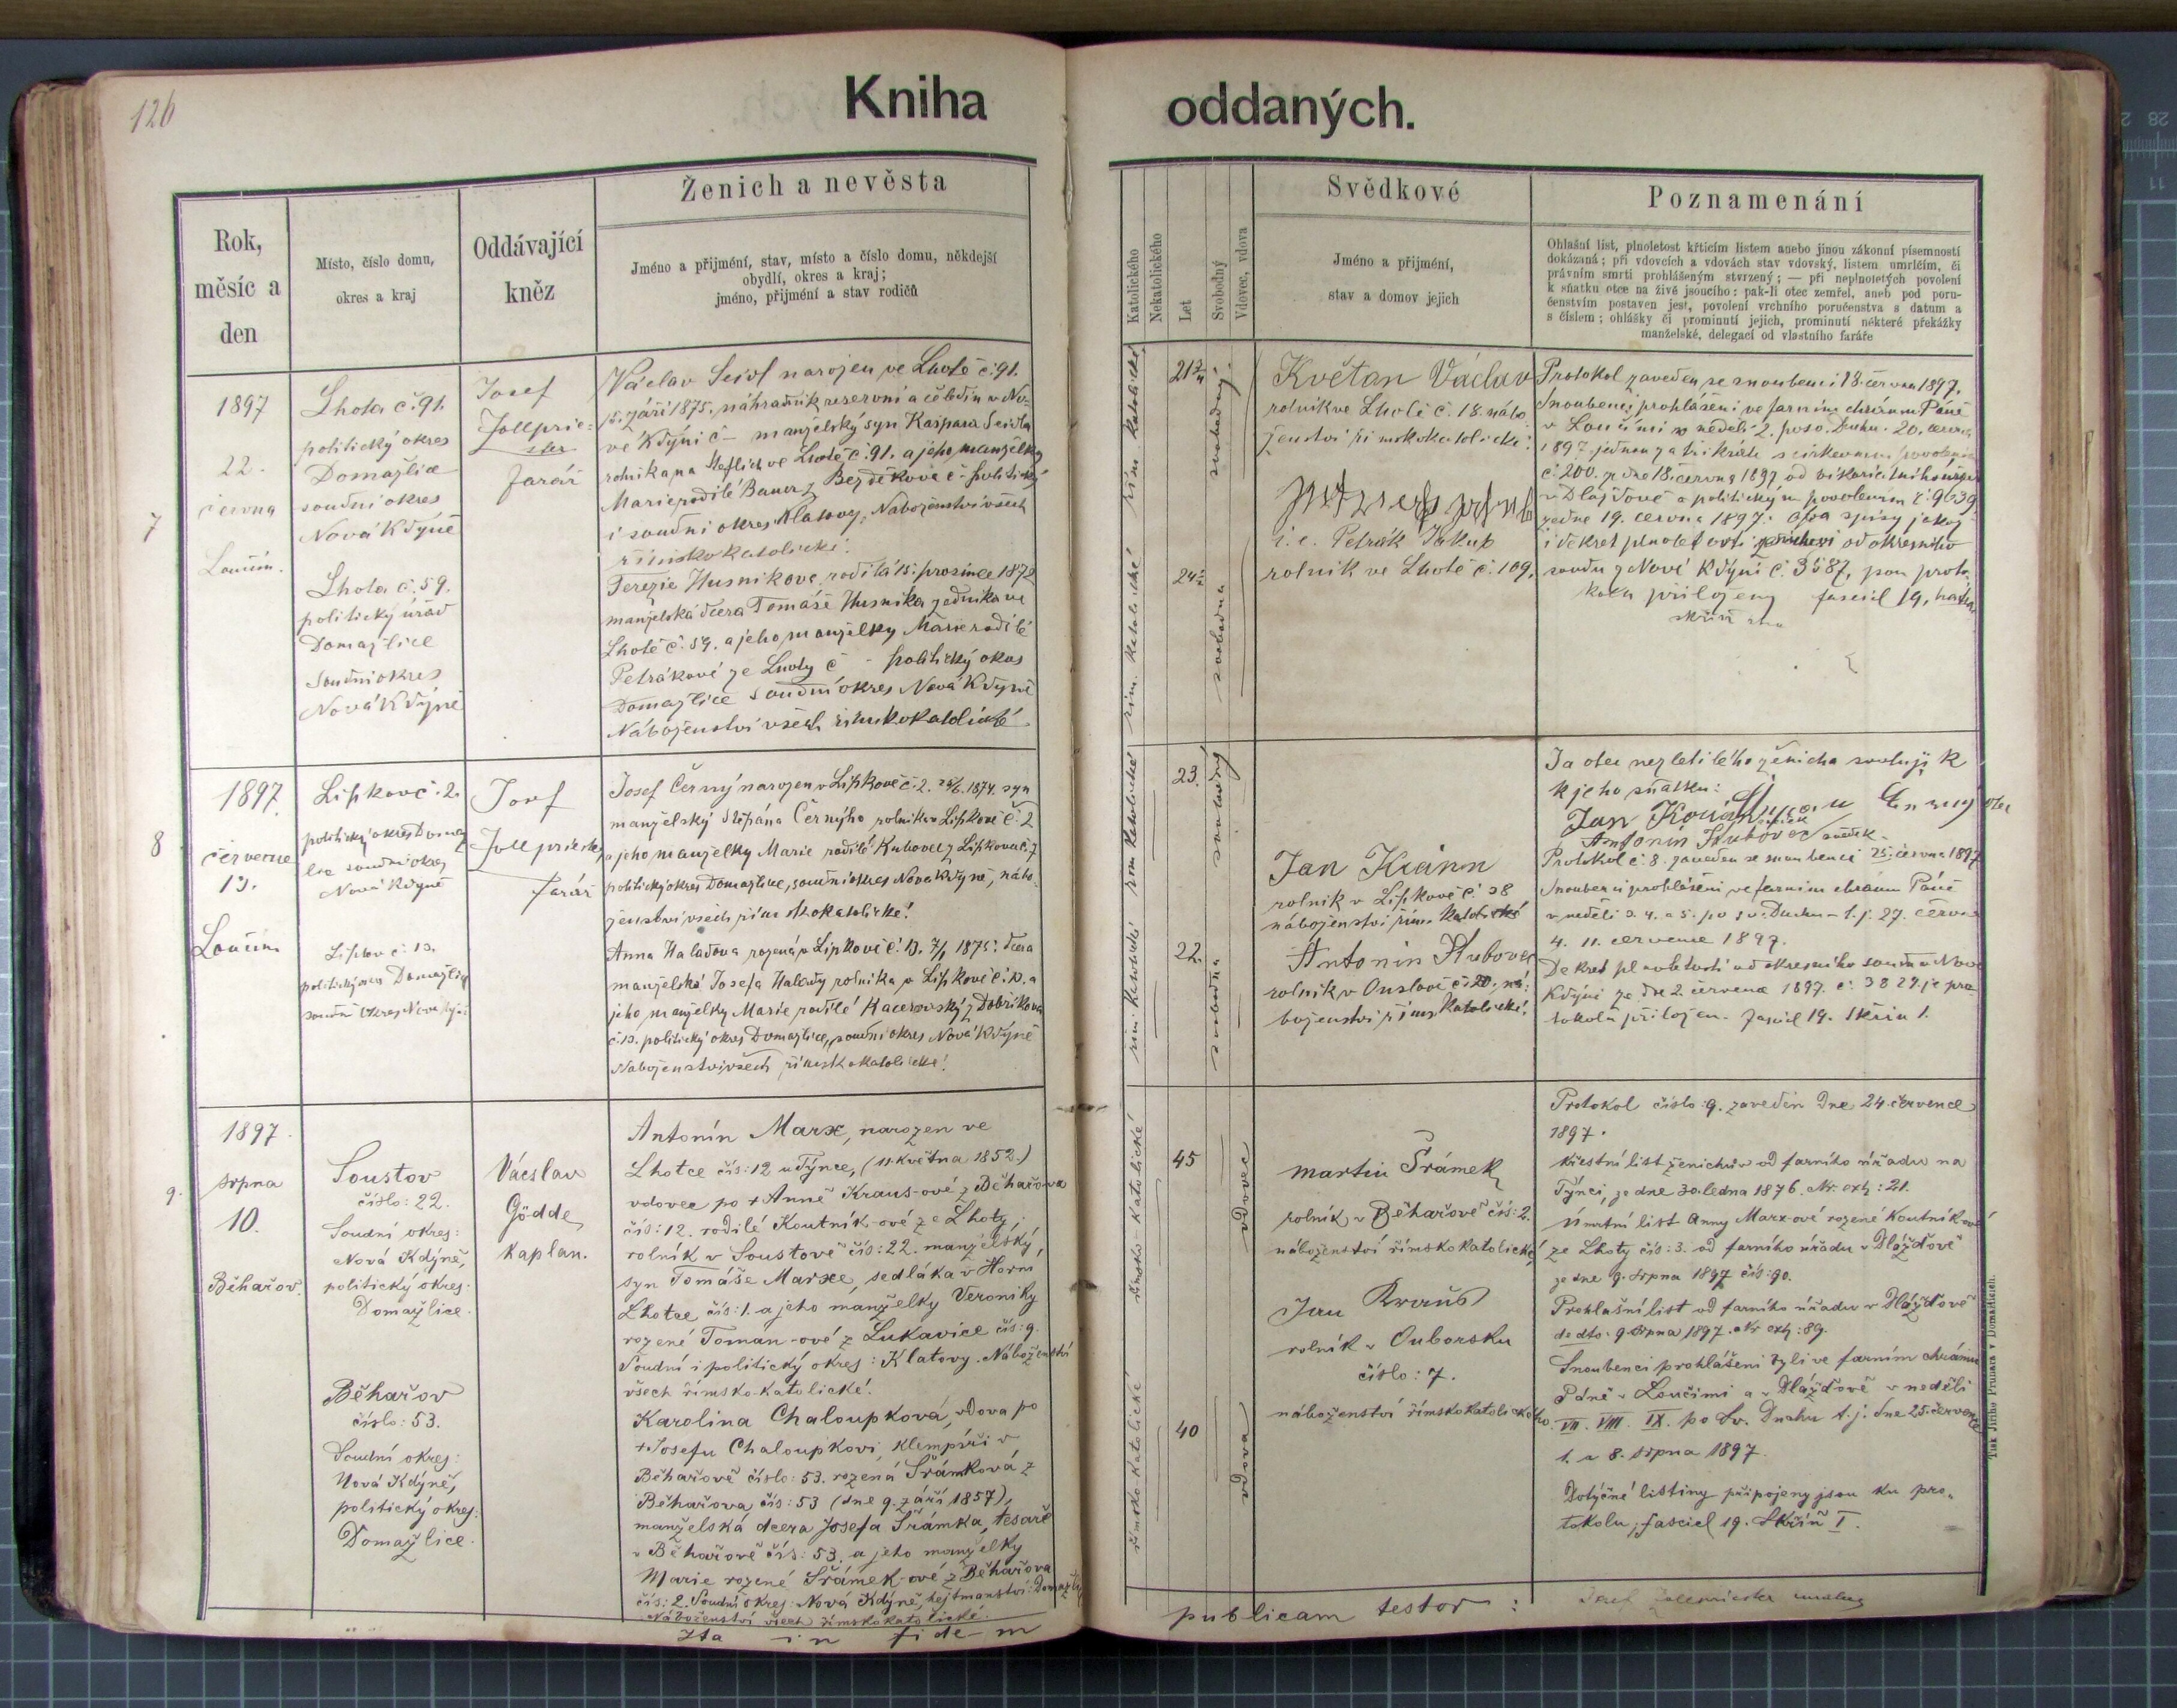 126
Kniha
oddaných.
Rok,
měsíc a
den
Místo, číslo domu,
okres a kraj
Oddávající
kněz
Ženich a nevěsta
Jméno a přijmění, stav, místo a číslo domu, někdejší
obydlí, okres a kraj;
jméno, přijmění a stav rodičů
Katolického
Nekatolického
Let
Svobodný
Vdovec, vdova
Svědkové
Jméno a přijmění,
stav a domov jejich
Poznamenání
Ohlašní list, plnoletost křticím listem anebo jinou zákonní písemností
dokázaná; při vdovcích a vdovách stav vdovský, listem umrlčím, či
právním smrti prohlášeným stvrzený; — při neplnoletých povolení
k sňatku otce na živě jsoucího: pak-li otec zemřel, aneb pod poru-
čenstvím postaven jest, povolení vrchního poručenstva s datum a
s číslem; ohlášky či prominutí jejich, prominutí některé překážky
manželské, delegací od vlastního faráře
7
1897
22.
června
Loučim.
Lhota č. 91.
politický okres
Domažlice
soudní okres
Nová Kdýně
Lhota č. 59.
politický úřad
Domažlice
Soudní okres
Nová Kdýně
Josef
Zollprie-
ster
farář
Václav Seidl narozen ve Lhotě č. 91.
15. září 1875. náhradník reservní a čeledín v No-
vé Kdýni č – manželský syn Kašpara Seidla
rolníka ve Lhotě č. 91. a jeho manželky
Marie rodilé Bauer z Bezděkova č – politický
i soudní okres Klatovy. Náboženství všech
římskokatolické.
Terezie Husnikova, rodilá 15. prosince 1872
manželská dcera Tomáše Husnika zedníka ve
Lhotě č. 59. a jeho manželky Marie rodilé
Petrákové ze Lhoty č – politický okres
Domažlice soudní okres Nová Kdyně
Náboženství všech římskokatolické
řím. katolické
21
svobodný
řím. katolické
24
svobodna
Květan Václav
rolník ve Lhotě č. 18. nábo-
ženství římskokatolické.
i. e. Petrák Jakub
rolník ve Lhotě č. 109,
Protokol zaveden se snoubenci 18. června 1897.
Snoubenci prohlášeni ve farním chrámu Páně
v Loučimi v neděli 2. po sv. Duchu. 20. června
1897. jednou za třikráte s církevním povolením
č. 200. ze dne 18. června 1897 od vikariatního úřadu
v Dlažďově a politickým povolením č. 9639
ze dne 19. června 1897. oba spisy jakož
i dekret plnoletosti od okresního
soudu z Nové Kdýni č. 3587, jsou proto-
kolu přiloženy fascicl 19,
8
1897.
července
13.
Loučim
Lipkov č. 2.
politický okres Domaž-
lice soudní okres
Nová Kdyně
Lipkov č. 13.
politický okres Domažlice
soudní okres Nová Kdyně
Josef
Zollpriester
farář
Josef Černý narozen v Lipkově č. 2. 1874. syn
manželský Štěpána Černýho rolníka v Lipkově č. 2
a jeho manželky Marie rodilé Kubovec z Lipkova č. 7
politický okres Domažlice, soudní okres Nová Kdyně, nábo-
ženství všech římskokatolické.
Anna Haladova rozená v Lipkově č. 13. 1875. dcera
manželská Josefa Halady rolníka v Lipkově č. 13. a
jeho manželky Marie rodilé Kacerovský z Dobříkova
č. 13. politický okres Domažlice, soudní okres Nová Kdyně
Naboženství všech římskokatolické.
řím katolické
23.
svobodný
řím. Katolické
22.
svobodna
Jan
rolník v Lipkově č. 38
náboženství řím. katolické
Antonín Hubovec
rolník v Ouslově č. 20. ná-
boženství řím. katolické.
Ja otec nezletilého ženicha svoluji k
k jeho sňatku:
otec
Antonín Hubovec svědek.
Protokol č. 8. zaveden se snoubenci 25. června 1897
Snoubenci prohlášeni ve farním chrámu Páně
v neděli 3. 4. a 5. po sv. Duchu – t. j. 27. června
4. 11. července 1897.
Dekret plnoletosti od okresního soudu v Nové
Kdýni ze dne 2. července 1897. č. 3829. je pro-
tokolu přiložen. Fascicl 19. Skřín 1.
9.
1897.
srpna
10.
Běhařov.
Soustov
číslo: 22.
Soudní okres:
Nová Kdýně,
politický okres:
Domažlice.
Běhařov
číslo: 53.
Soudní okres:
Nová Kdýně,
politický okres:
Domažlice.
Vácslav
Gödde
kaplan.
Antonín Marx, narozen ve
Lhotce čís: 12 u Týnce, (11. května 1852.)
vdovec po + Anně Kraus-ové z Běhařova
čís: 12. rodilé Koutník-ové ze Lhoty,
rolník v Soustově čís: 22. manželský
syn Tomáše Marxe, sedláka v Horní
Lhotce čís: 1. a jeho manželky Veroniky
rozené Toman-ové z Lukavice čís: 9.
Soudní i politický okres: Klatovy. Náboženství
všech římsko-katolické.
Karolina Chaloupková, vdova po
+ Josefu Chaloupkovi, klempíři v
Běhařově číslo: 53. rozená Šrámková z
Běhařova čís: 53 (dne 9. září 1857),
manželská dcera Josefa Šrámka, tesaře
v Běhařově čís: 53. a jeho manželky
Marie rozené Šrámek-ové z Běhařova
čís: 2. Soudní okres: Nová Kdýně, hejtmanství: Domažlice
Náboženství všech římskokatolické.
římsko-katolické
45
vdovec
římsko-katolické
40
vdova
Martin Šrámek
rolník v Běhařově čís: 2.
náboženství římskokatolické,
Jan Kraus
rolník v Ouborsku
číslo: 7.
náboženství římskokatolického.
Protokol číslo: 9. zaveden dne 24. července
1897.
Křestní list ženichův od farního úřadu na
Týnci, ze dne 30. ledna 1876. Nr. exh: 21.
Úmrtní list Anny Marx-ové rozené Koutník-ové
ze Lhoty čís: 3. od farního úřadu v Dlážďově
ze dne 9. srpna 1897 čís: 90.
Prohlašní list od farního úřadu v Dlážďově
de dto: 9. srpna 1897. Nr exh: 89.
Snoubenci prohlášeni byli ve farním chrámu
Páně v Loučimi a v Dlážďově v neděli
VII. VIII. IX. po Sv. Duchu t. j. dne 25. července
1. a 8. srpna 1897.
Dotyčné listiny připojeny jsou ku pro-
tokolu; fasciel 19. Skříň I.
Ita in fidem
publicam testor:
Josef Zollpriester
Tisk Jiřího Prunara v Domažlicích.